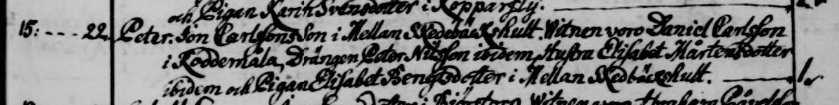 och Pigan Karin Svensdotter i Kopparfly.
15: ---- 22. Peter. Jon Carlssons Son i Mellan Skedebäckshult. Witnen voro Daniel Carlsson
i Koddemåla, Drängen Peter Nilsson ibidem, Hustru Elisabet Mårtensdotter
ibidem och Pigan Elisabet Bengtsdotter i Mellan Skedbäckshult. ---- 1.
Witnen voro